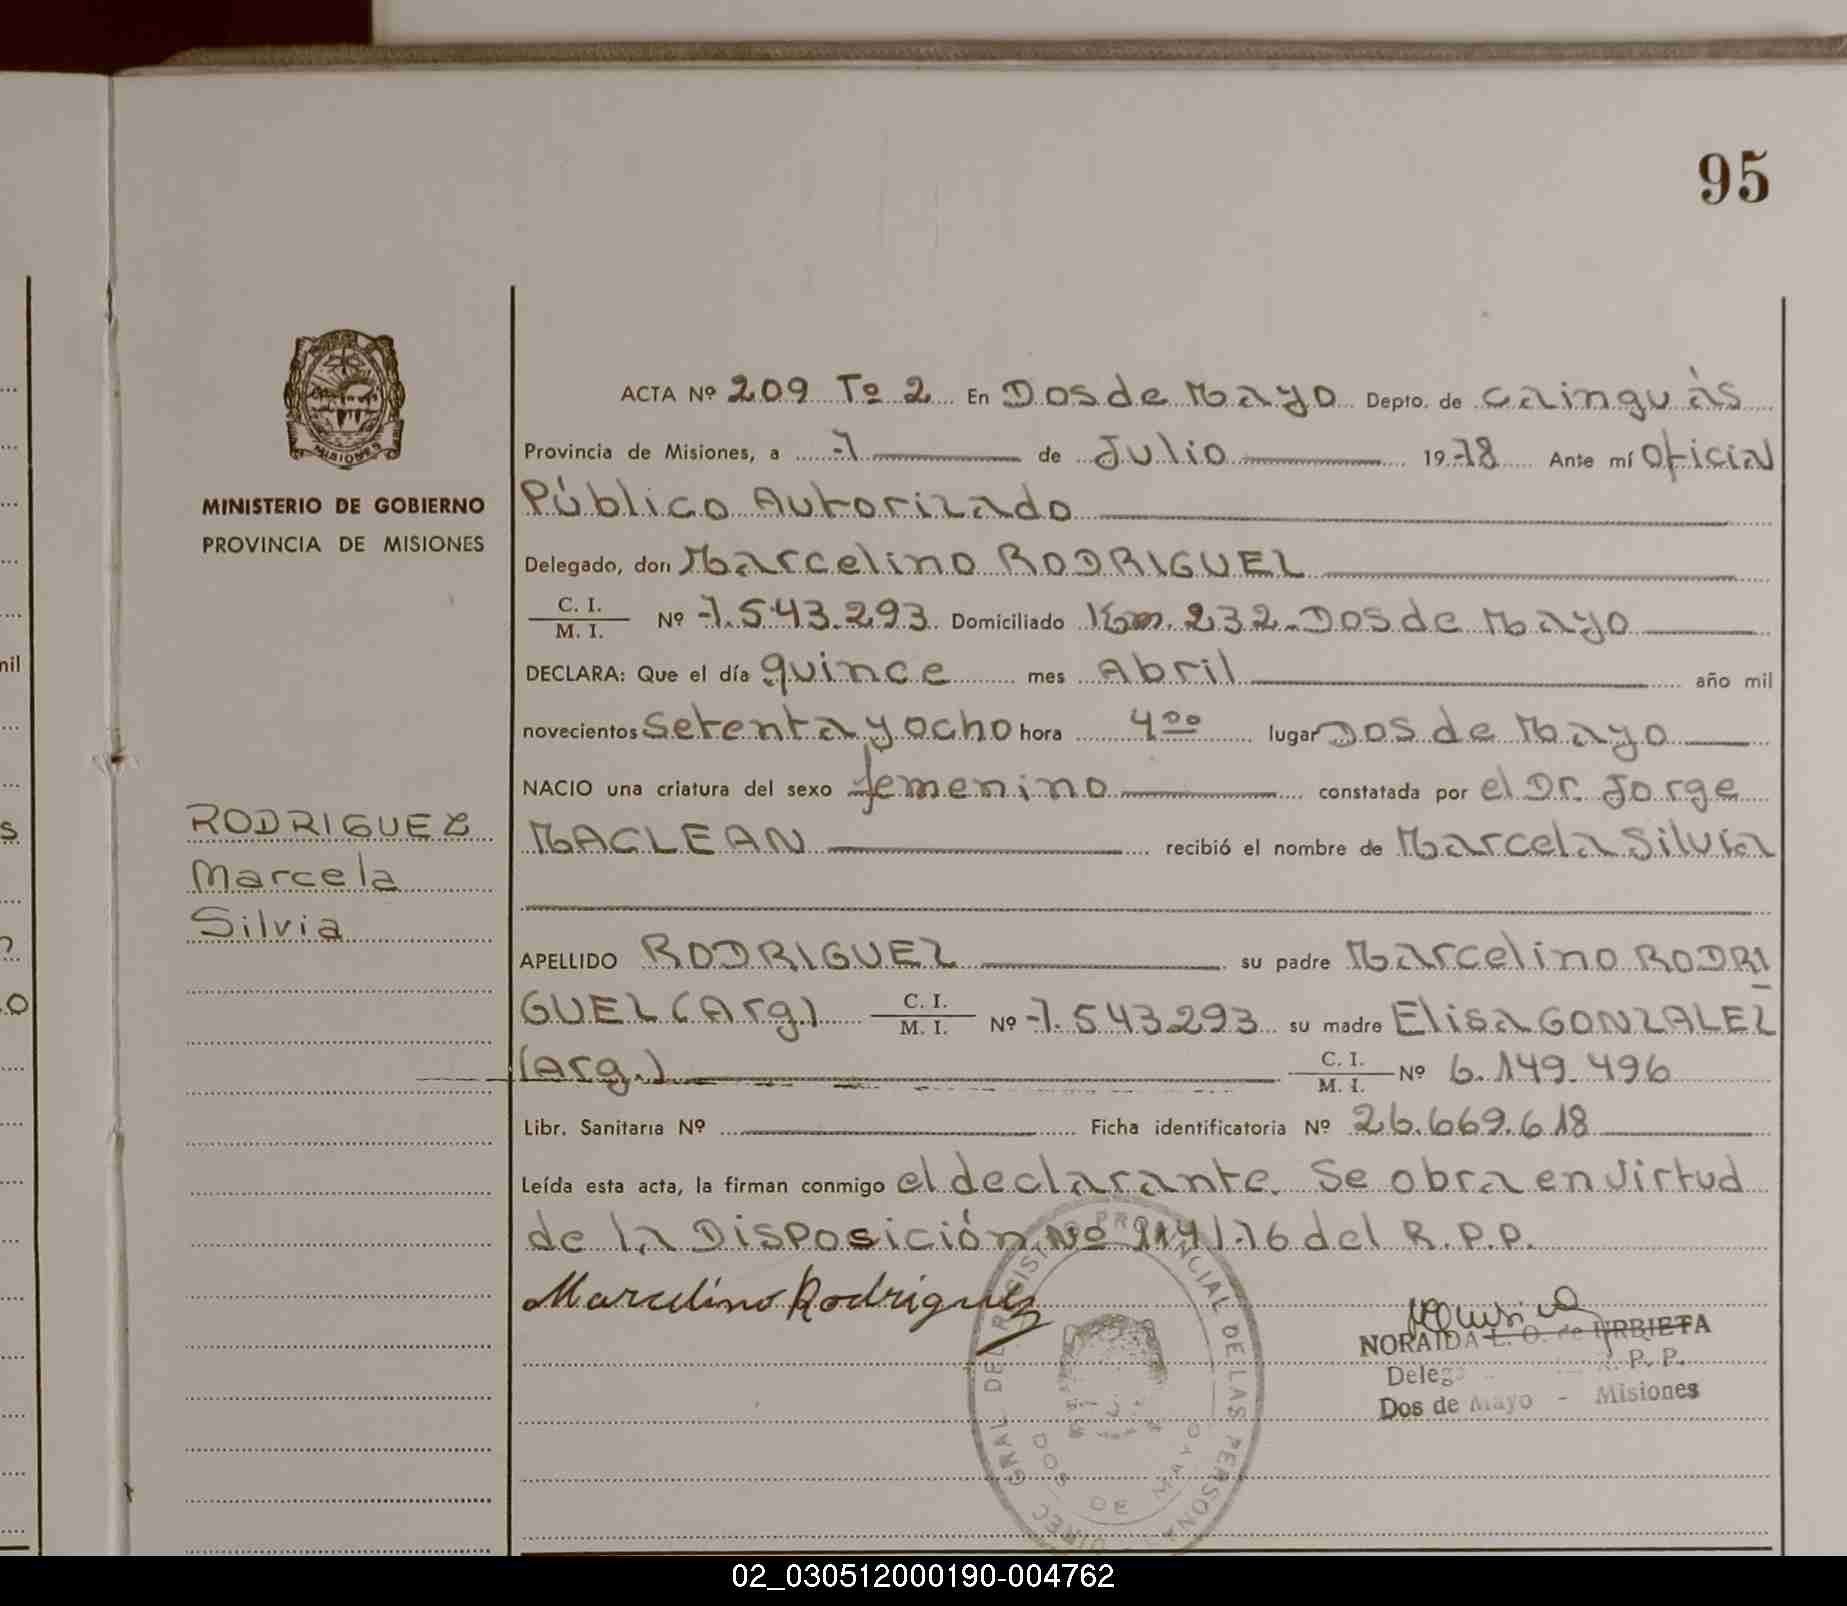 95
ACTA Nº 209 Tº 2 En Dos de Mayo Depto. de Cainguàs
Provincia de Misiones, a 7 de Julio 1978 Ante mí Oficial
Público Autorizado
MINISTERIO DE GOBIERNO
PROVINCIA DE MISIONES
Delegado, don Marcelino RODRIGUEZ
C. I.
M. I. Nº 7.543.293 Domiciliado Km. 232. Dos de Mayo
DECLARA: Que el día quince mes Abril año mil
novecientos setenta y ocho hora 4⁰⁰ lugar Dos de Mayo
NACIO una criatura del sexo femenino constatada por el Dr. Jorge
MACLEAN recibió el nombre de Marcela Silvia
RODRIGUEZ
Marcela
Silvia
APELLIDO RODRIGUEZ su padre Marcelino RODRI
GUEZ (Arg) C. I. M. I. Nº 7.543.293 su madre Elisa GONZALEZ
(Arg.) C. I. M. I. Nº 6.149.496
Libr. Sanitaria Nº Ficha identificatoria Nº 26.669.618
Leída esta acta, la firman conmigo el declarante. Se obra en virtud
de la Disposición Nº 114/76 del R.P.P.
Marcelino Rodriguez
NORAIDA L. O. de URBIETA
R. P. P.
Dos de Mayo - Misiones
DIREC GRAL DEL REGISTRO PROVINCIAL DE LAS PERSONA
DOS DE MAYO
MISIONES
02_030512000190-004762